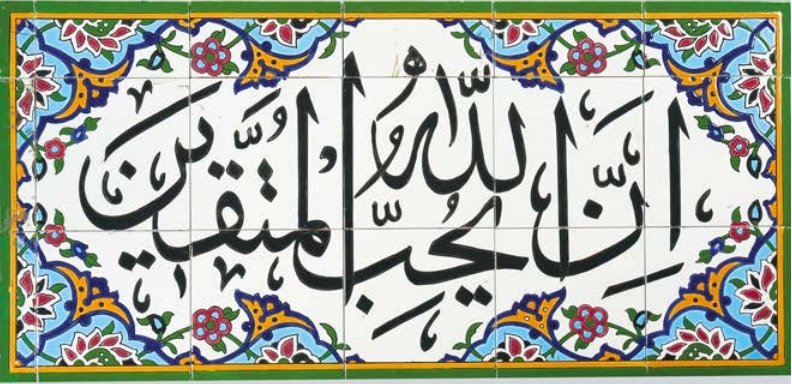 اِنَّ اللّٰهَ يُحِبُّ المُتَّقِينَ